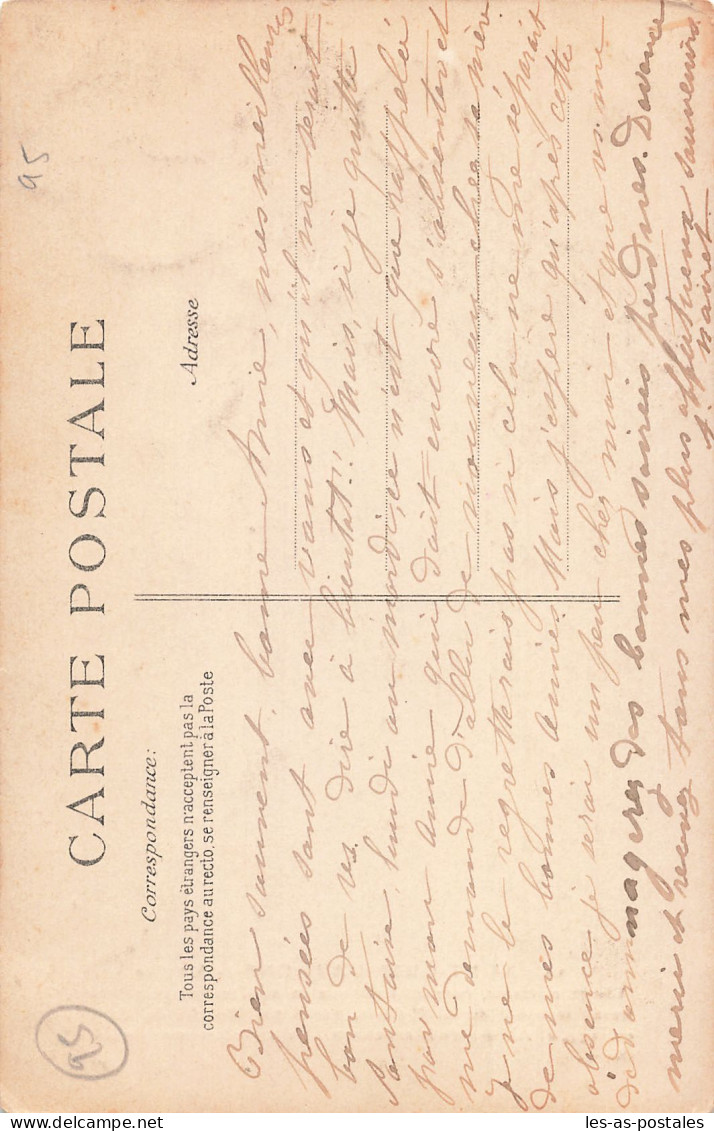 CARTE POSTALE
Correspondance:
Tous les pays étrangers n'acceptent pas la
correspondance au recto, se renseigner à la Poste
Adresse
95
95
Bien souvent, bonne Amie, mes meilleures
pensées sont avec vous et qu'il me serait
bon de vs dire à bientôt!! Mais, si je quitte
Santaire, lundi ou mardi, ce n'est que rappelée
par mon amie qui doit encore s'absenter et
me demande d'aller de nouveau chez sa mère
Je ne le regretterais pas si cela ne me séparait
de mes bonnes amies. Mais j'espère qu'après cette
absence je serai un peu chez moi et que vs me
dédommagerez des bonnes soirées perdues. D'avance
merci et recevez tous mes plus affectueux souvenirs.
les-as-postales